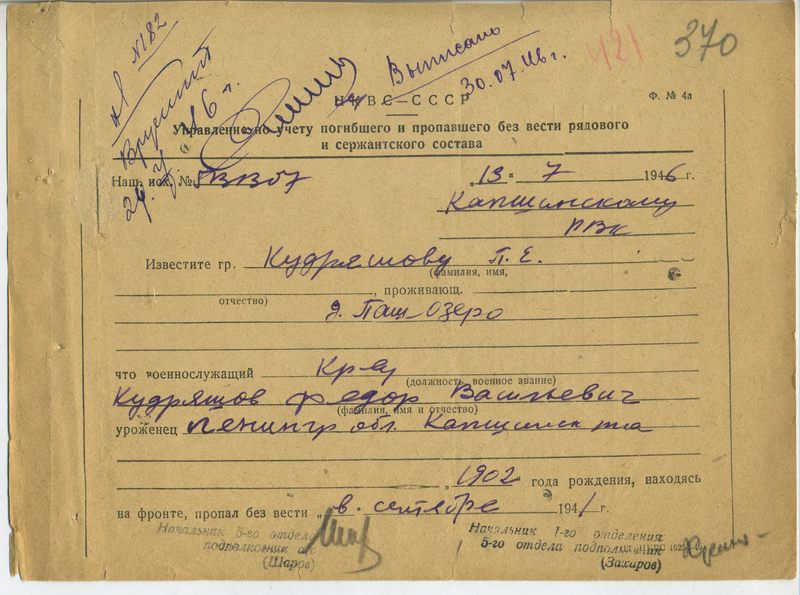 №182
Вручит
46 г.
Выписано
30.07.46 г.
421
370
НКВС-СССР
Ф. № 4а
Управление по учету погибшего и пропавшего без вести рядового
и сержантского состава
Наш. исх. №
„13" 7 1946 г.
Капшинскому
РВК
Известите гр. Кудряшову П. Е.
(фамилия, имя,
, проживающ.
отчество)
д. Паш-Озеро
что военнослужащий Кр-ец
(должность, военное звание)
Кудряшов Федор Васильевич
(фамилия, имя и отчество)
уроженец Ленингр. обл. Капшинск. р-на
„ 1902 года рождения, находясь
на фронте, пропал без вести „ в. сентябре 1941 г.
Начальник 5-го отдела
подполковник а/с
(Шаров)
Начальник 1-го отделения
5-го отдела подполковник
(Захиров)